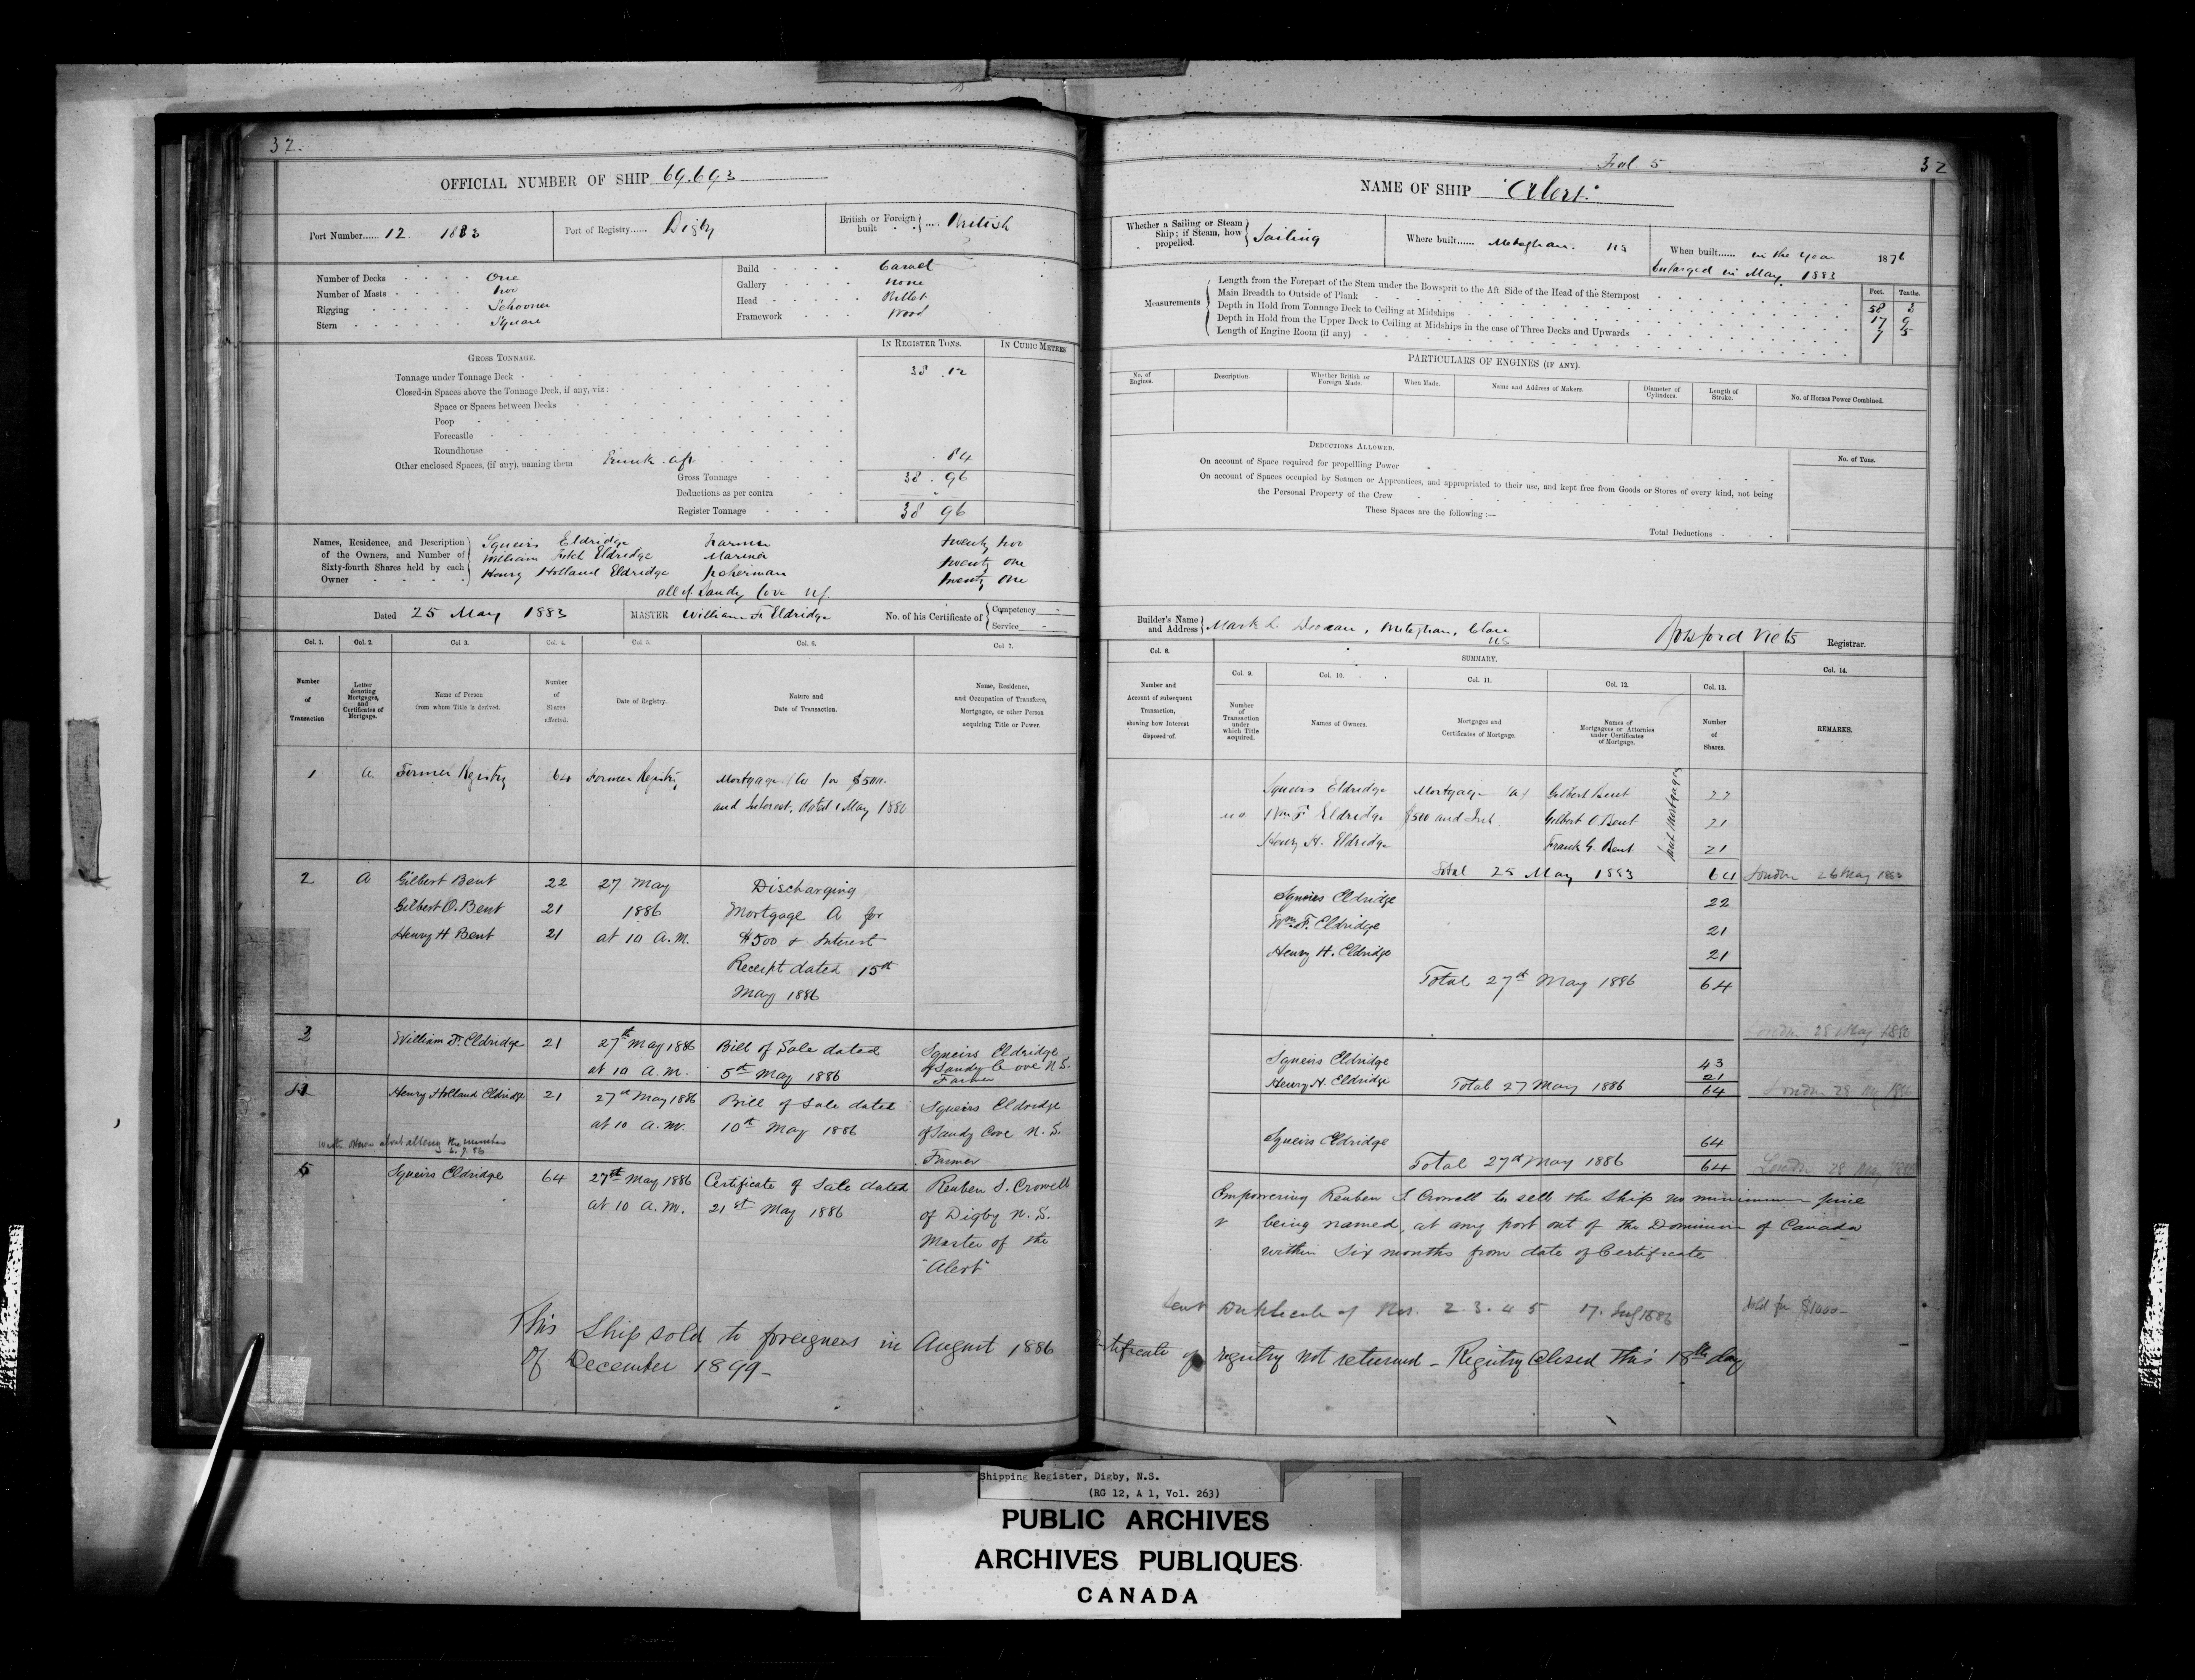 32.
OFFICIAL NUMBER OF SHIP 69.693
Port Number...... 12 1883
Port of Registry...... Digby
British or Foreign built .... British
Number of Decks One
Number of Masts two
Rigging Schooner
Stern Square
Build Carvel
Gallery none
Head Billet
Framework Wood
GROSS TONNAGE.
IN REGISTER TONS.
IN CUBIC METRES
Tonnage under Tonnage Deck 38 . 12
Closed-in Spaces above the Tonnage Deck, if any, viz:
Space or Spaces between Decks
Poop
Forecastle
Roundhouse
Other enclosed Spaces, (if any), naming them Trunk aft . 84
Gross Tonnage 38 . 96
Deductions as per contra
Register Tonnage 38 96
Names, Residence, and Description of the Owners, and Number of Sixty-fourth Shares held by each Owner
Squeirs Eldridge Farmer twenty two
William Fitch Eldridge Mariner twenty one
Henry Holland Eldridge fisherman twenty one
all of Sandy Cove NS.
Dated 25 May 1883
MASTER William F Eldridge
No. of his Certificate of Competency Service
Col. 1. Number of Transaction
Col. 2. Letter denoting Mortgages, and Certificates of Mortgage.
Col 3. Name of Person from whom Title is derived.
Col. 4. Number of Shares affected.
Col 5. Date of Registry.
Col. 6. Nature and Date of Transaction.
Col 7. Name, Residence, and Occupation of Transferee, Mortgagee, or other Person acquiring Title or Power.
1 A. Former Registry 64 Former Registry Mortgage (A) for $500.
and Interest, dated 1 May 1880
2 A Gilbert Bent 22 27 May Discharging
Gilbert O. Bent 21 1886 Mortgage A for
Henry H Bent 21 at 10 A.M. $500 & Interest
Receipt dated 15th
May 1886
3 William F. Eldridge 21 27th May 1886 Bill of Sale dated Squeirs Eldridge
at 10 A.M. 5th May 1886 of Sandy Cove N.S.
Farmer
4 Henry Holland Eldridge 21 27th May 1886 Bill of Sale dated Squeirs Eldridge
at 10 A.M. 10th May 1886 of Sandy Cove N.S.
Farmer
about altering the numbers
5 Squeirs Eldridge 64 27th May 1886 Certificate of Sale dated Reuben S. Crowell
at 10 A.M. 21st May 1886 of Digby N.S.
Master of the
"Alert"
This Ship sold to foreigners in August 1886
of December 1899-
Fol. 5
32
NAME OF SHIP "Alert."
Whether a Sailing or Steam Ship; if Steam, how propelled. Sailing
Where built...... Meteghan. NS
When built...... in the year 1876
Enlarged in May, 1883
Measurements
Feet. Tenths.
Length from the Forepart of the Stem under the Bowsprit to the Aft Side of the Head of the Sternpost 58 3
Main Breadth to Outside of Plank 17 9
Depth in Hold from Tonnage Deck to Ceiling at Midships 7 5
Depth in Hold from the Upper Deck to Ceiling at Midships in the case of Three Decks and Upwards
Length of Engine Room (if any)
PARTICULARS OF ENGINES (IF ANY).
No. of Engines.
Description
Whether British or Foreign Made.
When Made.
Name and Address of Makers.
Diameter of Cylinders.
Length of Stroke.
No. of Horses Power Combined.
DEDUCTIONS ALLOWED.
No. of Tons.
On account of Space required for propelling Power
On account of Spaces occupied by Seamen or Apprentices, and appropriated to their use, and kept free from Goods or Stores of every kind, not being
the Personal Property of the Crew
These Spaces are the following :—
Total Deductions
Builder's Name and Address Mark L. Meteghan, Clare NS
Botsford Viets Registrar.
Col. 8. Number and Account of subsequent Transaction, showing how Interest disposed of.
SUMMARY.
Col. 9. Number of Transaction under which Title acquired.
Col. 10. Names of Owners.
Col. 11. Mortgages and Certificates of Mortgage.
Col. 12. Names of Mortgagees or Attornies under Certificates of Mortgage.
Col. 13. Number of Shares.
Col. 14. REMARKS.
Squeirs Eldridge Mortgage (A) Gilbert Bent 22
Wm F. Eldridge $500 and Int. Gilbert O. Bent 21
Henry H. Eldridge Frank G. Bent 21
Joint Mortgagees
Total 25 May 1883 64 London 26 May 1883
Squeirs Eldridge 22
Wm. F. Eldridge 21
Henry H. Eldridge 21
Total 27th May 1886 64
London 28 May 1886
Squeirs Eldridge 43
Henry H. Eldridge 21
Total 27 May 1886 64 London 28 May 1886
Squeirs Eldridge 64
Total 27th May 1886 64 London 28 May 1886
Empowering Reuben S. Crowell to sell the Ship no minimum price
being named, at any port out of the Dominion of Canada
within Six months from date of Certificate
Sent Duplicate of Nos. 2. 3. 4 5 17. 1886 Sold for $1000-
Certificate of registry not returned - Registry Closed this 18th day
Shipping Register, Digby, N.S.
(RG 12, A 1, Vol. 263)
PUBLIC ARCHIVES
ARCHIVES PUBLIQUES
CANADA